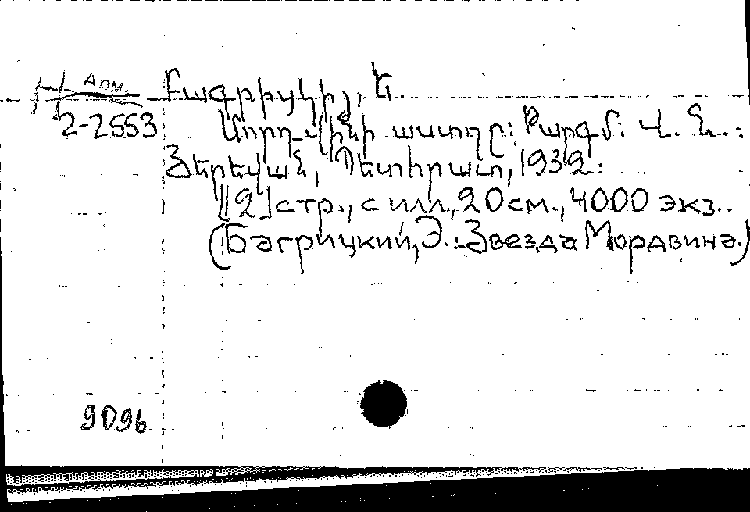 Арм. Բագրիցկի, Է.
2-2553 Մորդվինի աստղը: Թարգմ. Վ. Ն.:
Յերեվան, Պետհրատ, 1932:
[2] стр., с илл., 20 см., 4000 экз.
(Багрицкий, Э. Звезда Мордвина.)
9096